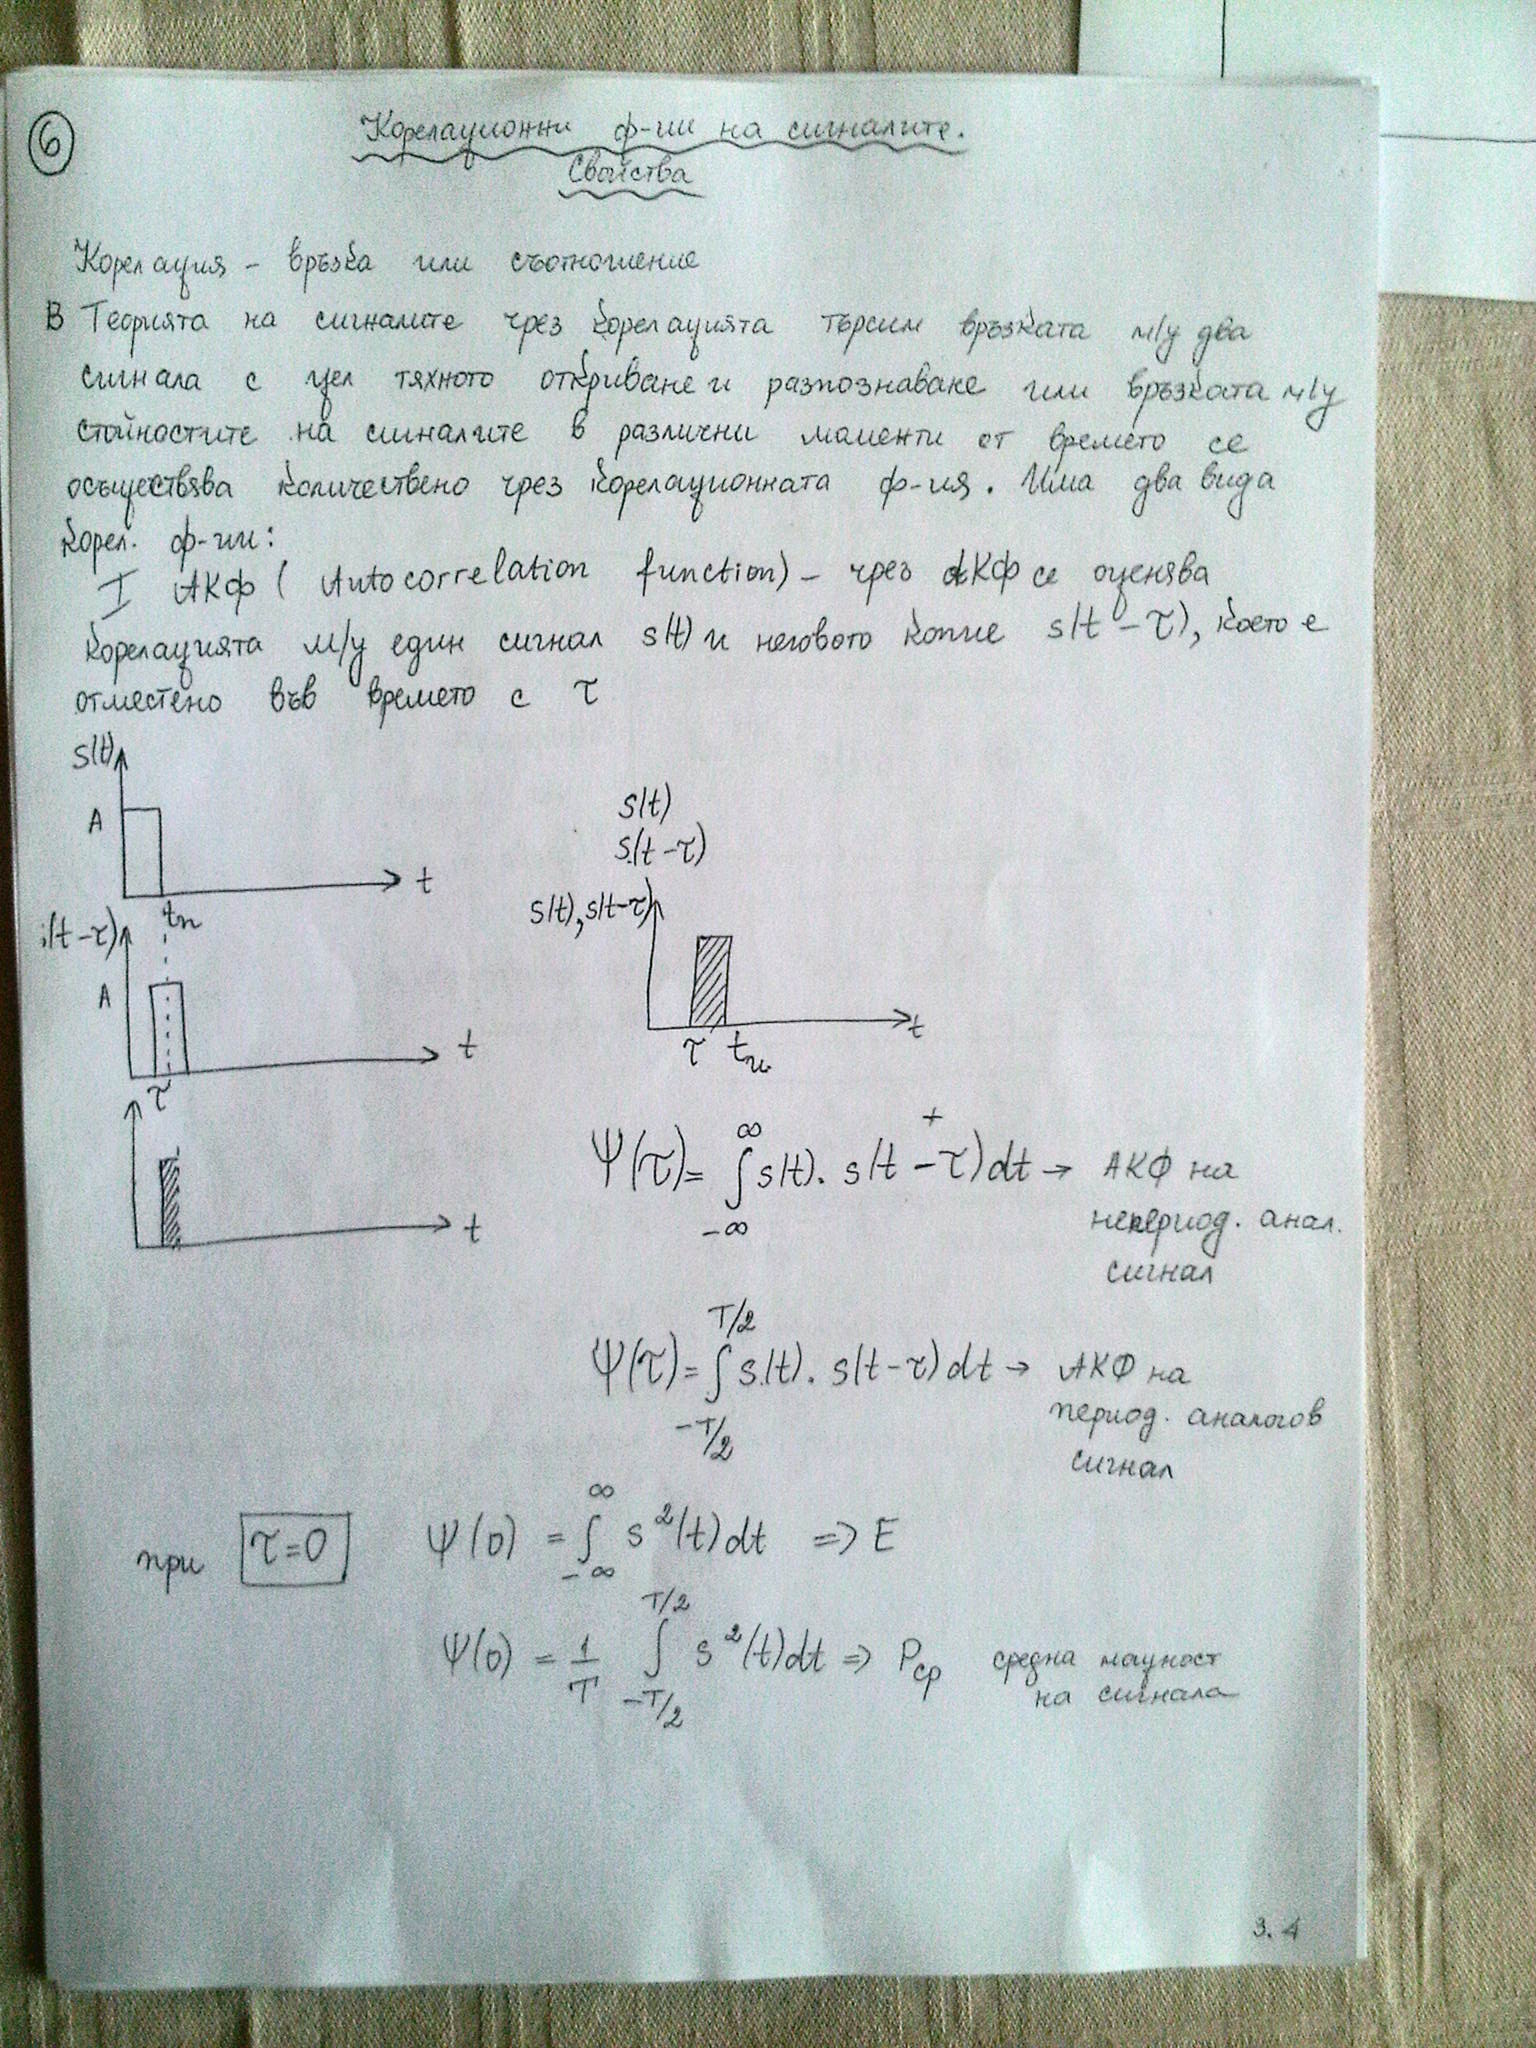 6
Корелационни ф-ии на сигналите.
Свойства
Корелация - връзка или съотношение
В Теорията на сигналите чрез корелацията търсим връзката м/у два
сигнала с цел тяхното откриване и разпознаване или връзката м/у
стойностите на сигналите в различни моменти от времето се
осъществява количествено чрез корелационната ф-ия. Има два вида
корел. ф-ии:
I АКФ ( Autocorrelation function) - чрез АКФ се оценява
корелацията м/у един сигнал s(t) и неговото копие s(t-τ), което е
отместено във времето с τ
s(t)
A
t
tи
s(t)
s(t-τ)
s(t), s(t-τ)
t
τ tи
(t-τ)
A
t
τ
t
Ψ(τ)= ∫_{-∞}^{∞} s(t). s(t -⁺ τ)dt → АКФ на
непериод. анал.
сигнал
Ψ(τ)= ∫_{-T/2}^{T/2} s(t). s(t-τ)dt → АКФ на
период. аналогов
сигнал
при τ=0 Ψ(0) = ∫_{-∞}^{∞} s²(t)dt => E
Ψ(0) = 1/T ∫_{-T/2}^{T/2} s²(t)dt => Pср средна мощност
на сигнала
3.4